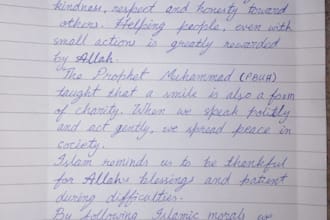 kindness, respect and honesty toward
others. Helping people, even with
small action is greatly rewarded
by Allah.
The Prophet Muhammad (PBUH)
taught that a smile is also a form
of charity. When we speak politly
and act gently, we spread peace in
society.
Islam reminds us to be thankful
for Allah's blessings and patient
during difficulties.
By following Islamic morals we